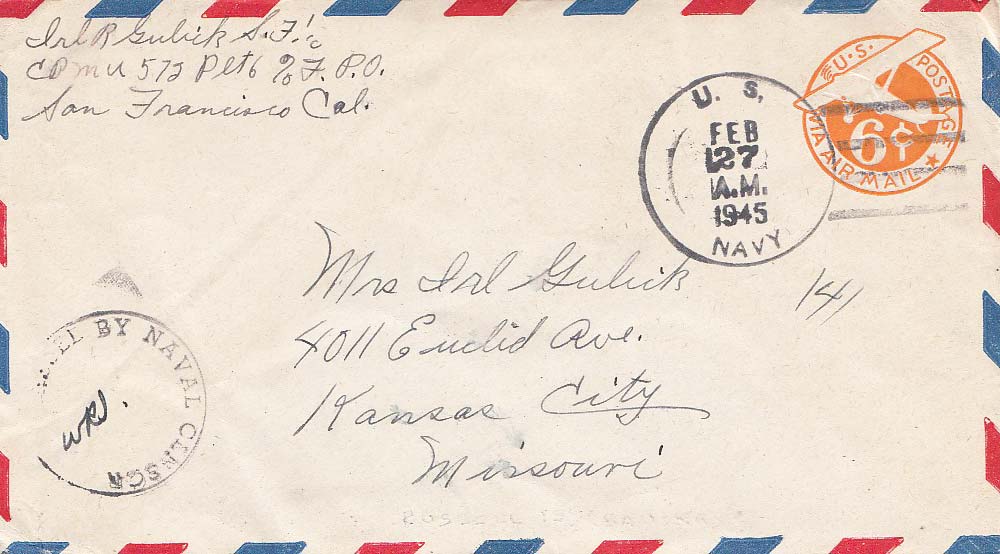 Irl R Gulick S. F. 1/c
CBMU 572 Plt 6 % F. P. O.
San Francisco Cal.
U. S. POSTAGE
6¢
VIA AIR MAIL
U. S.
FEB
27
A.M.
1945
NAVY
Mrs Irl Gulick
141
4011 Euclid Ave.
Kansas City
Missouri
BY NAVAL CENSOR